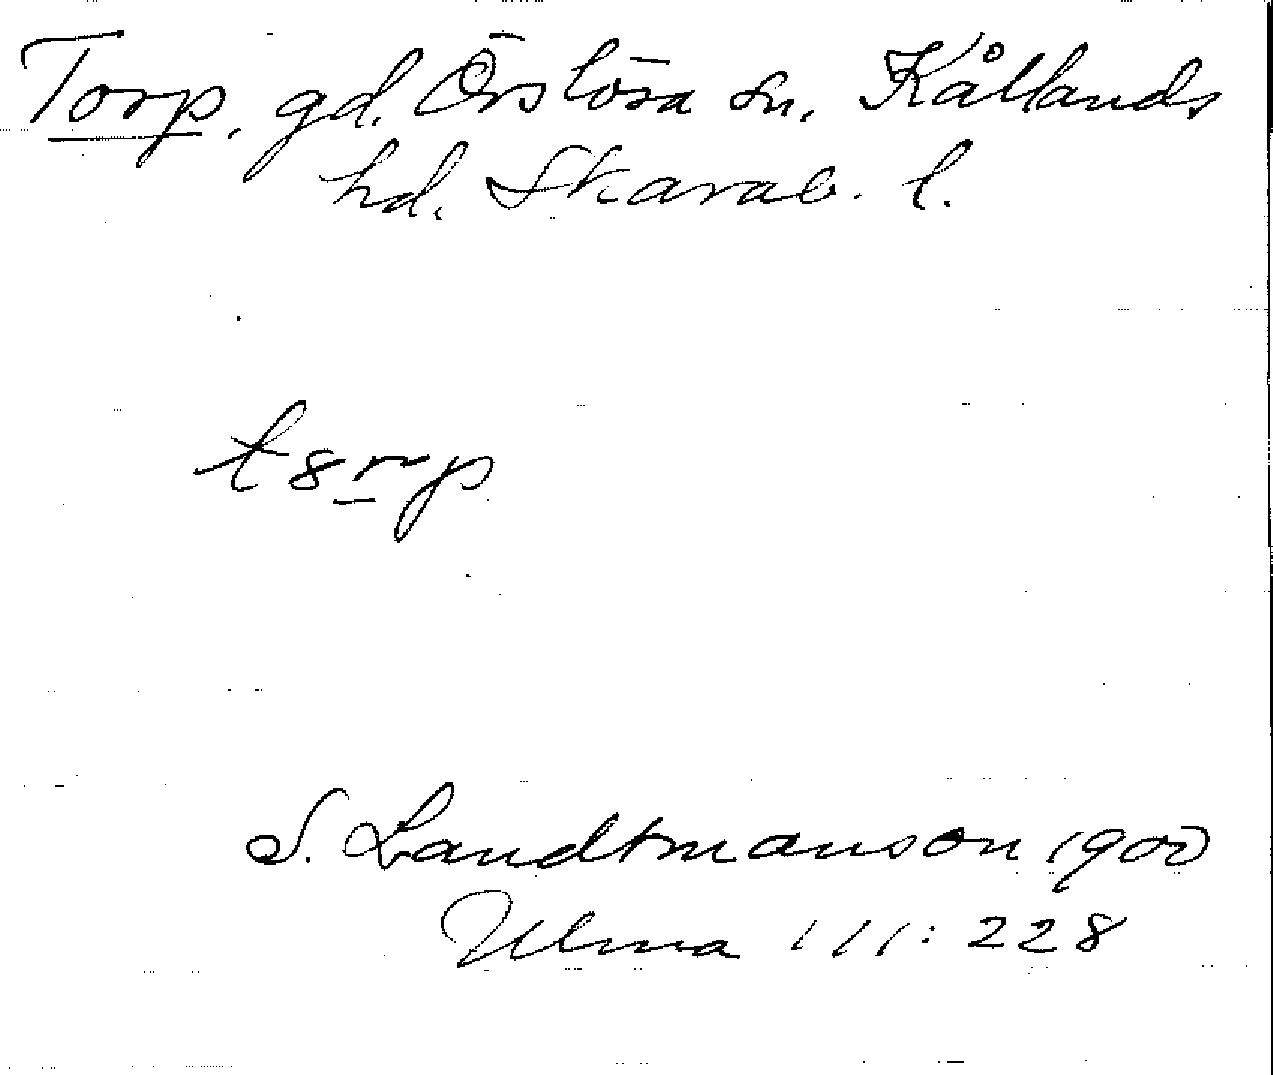 Torp, gd. Örslösa sn, Kållands
hd. Skarab. l.
t8rp
S. Landtmanson 1900
Ulma 111:228